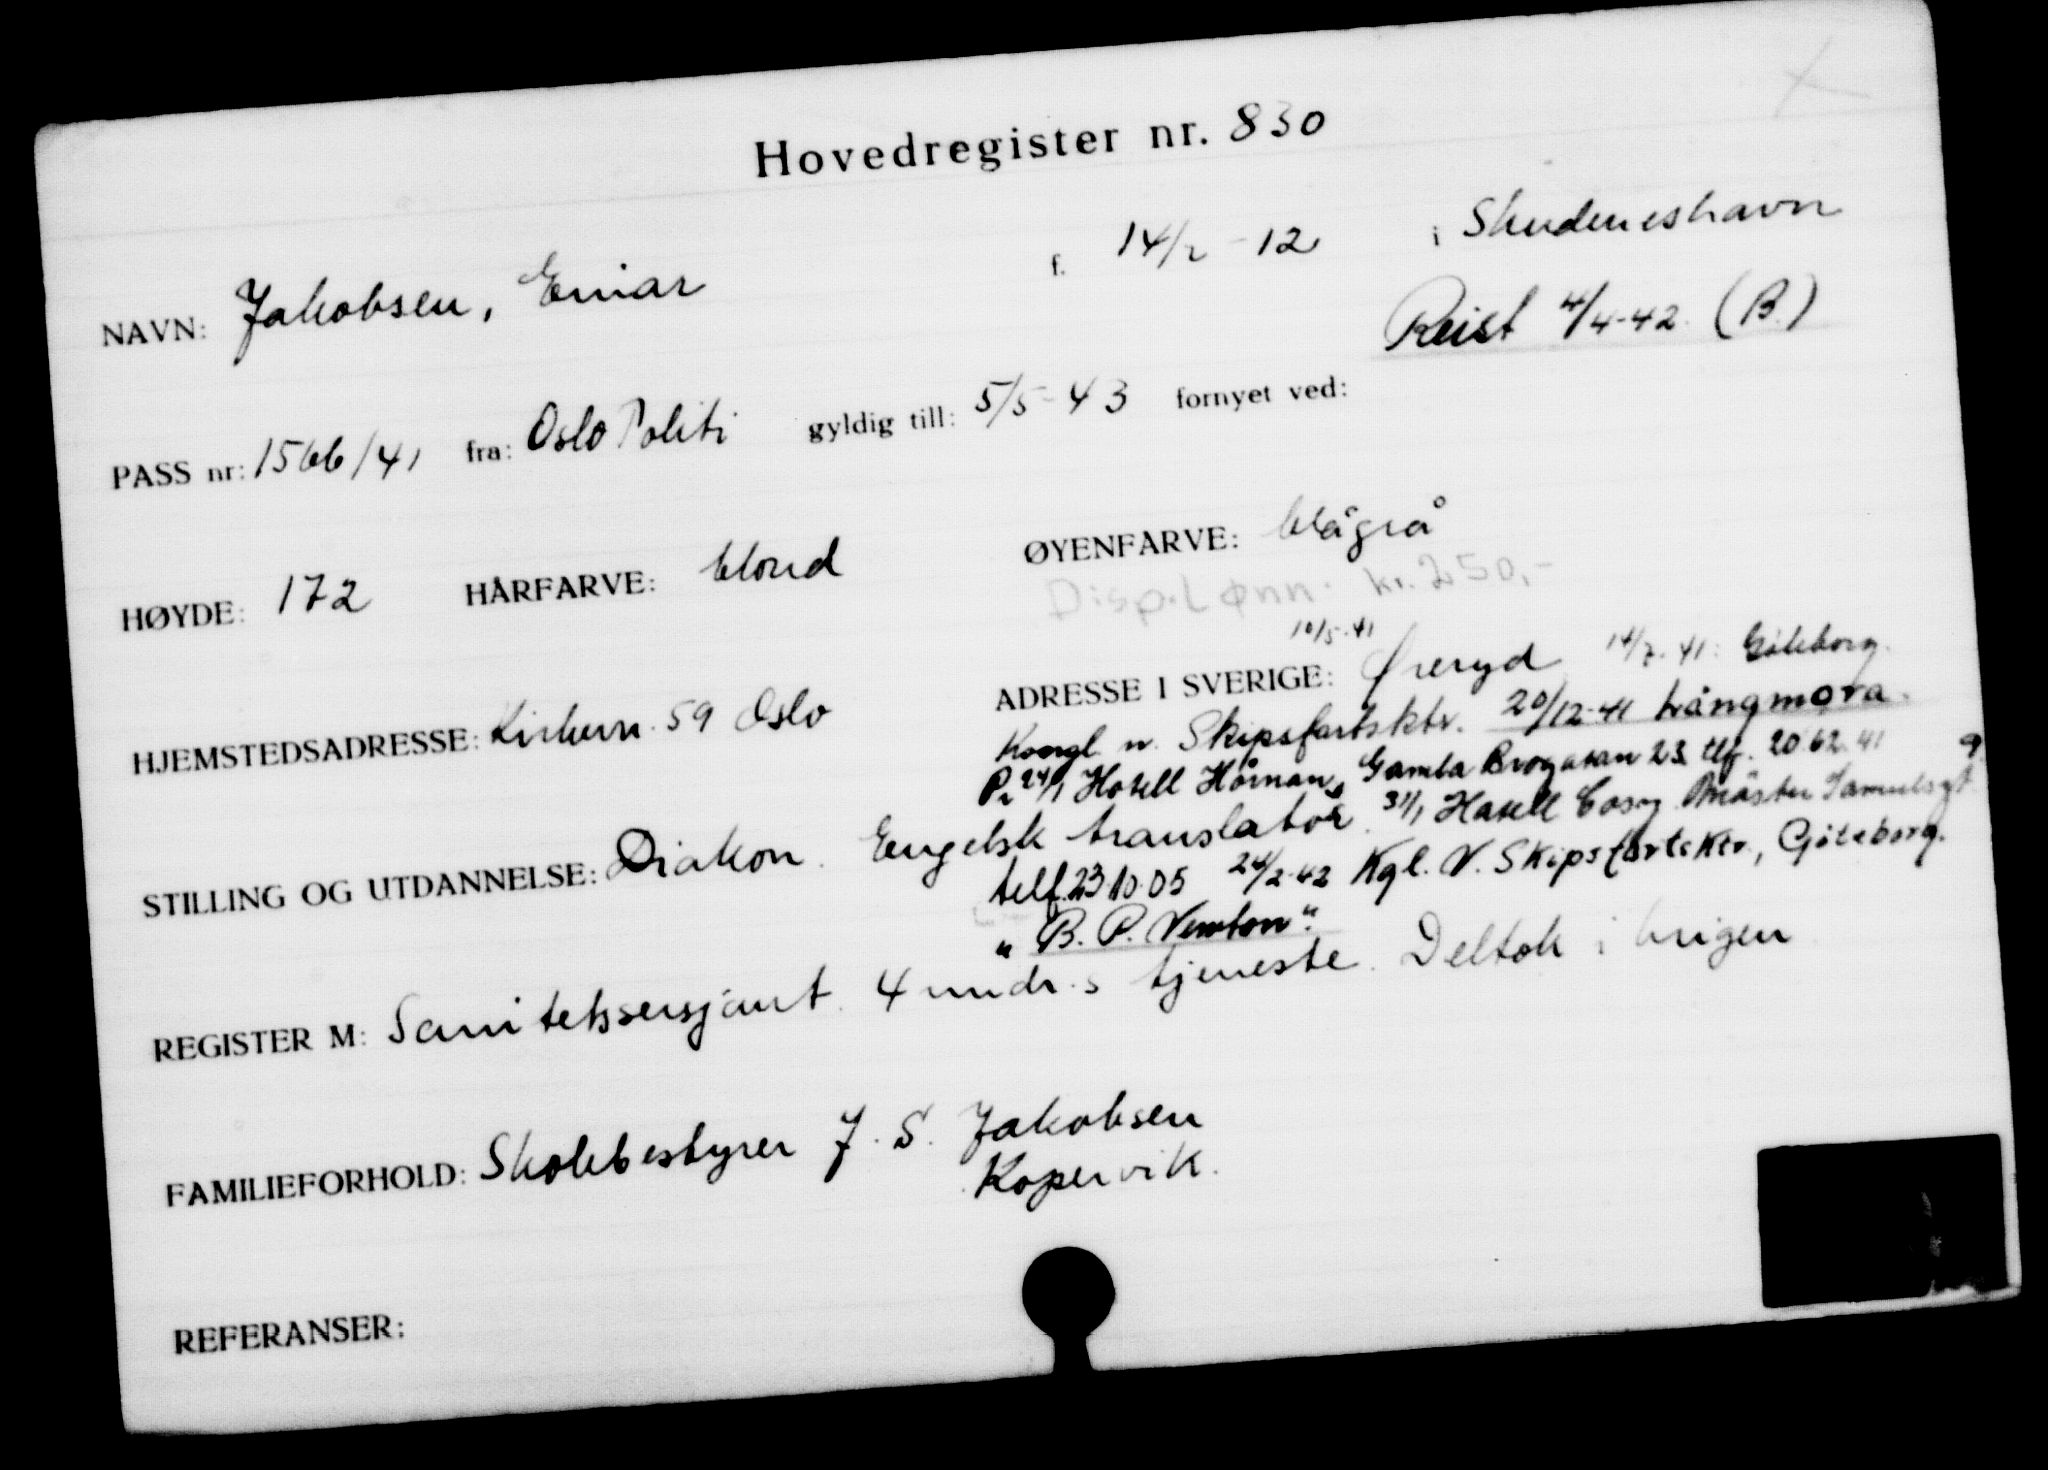 Hovedregister nr. 830
NAVN: Jakobsen, Einar f. 14/2 - 12 i Skudeneshavn
Reist 4/4-42. (B.)
PASS nr: 1566/41 fra: Oslo Politi gyldig till: 5/5-43 fornyet ved:
HØYDE: 172 HÅRFARVE: blond ØYENFARVE: blågrå
Disp. Lønn. kr. 250,-
HJEMSTEDSADRESSE: Kirkevn. 59 Oslo
ADRESSE I SVERIGE: 10/5-41 Øreryd 14/7-41: Göteborg.
Kongl. n. Skipsfartsktr. 20/12-41 Långmora.
24/1 Hotell Hörnan, Gamla Brogatan 23 tlf. 20 62 41
31/1 Hotell Cosy Mäster Samuelsgt 9
telf. 23 10 05 24/2-42 Kgl. N. Skipsfartsktr., Göteborg.
" B. P. Newton".
STILLING OG UTDANNELSE: Diakon. Engelsk translatør.
REGISTER M: Sanitetssersjant. 4 mndr.s tjeneste. Deltok i krigen
FAMILIEFORHOLD: Skolebestyrer J. S. Jakobsen
Kopervik.
REFERANSER: